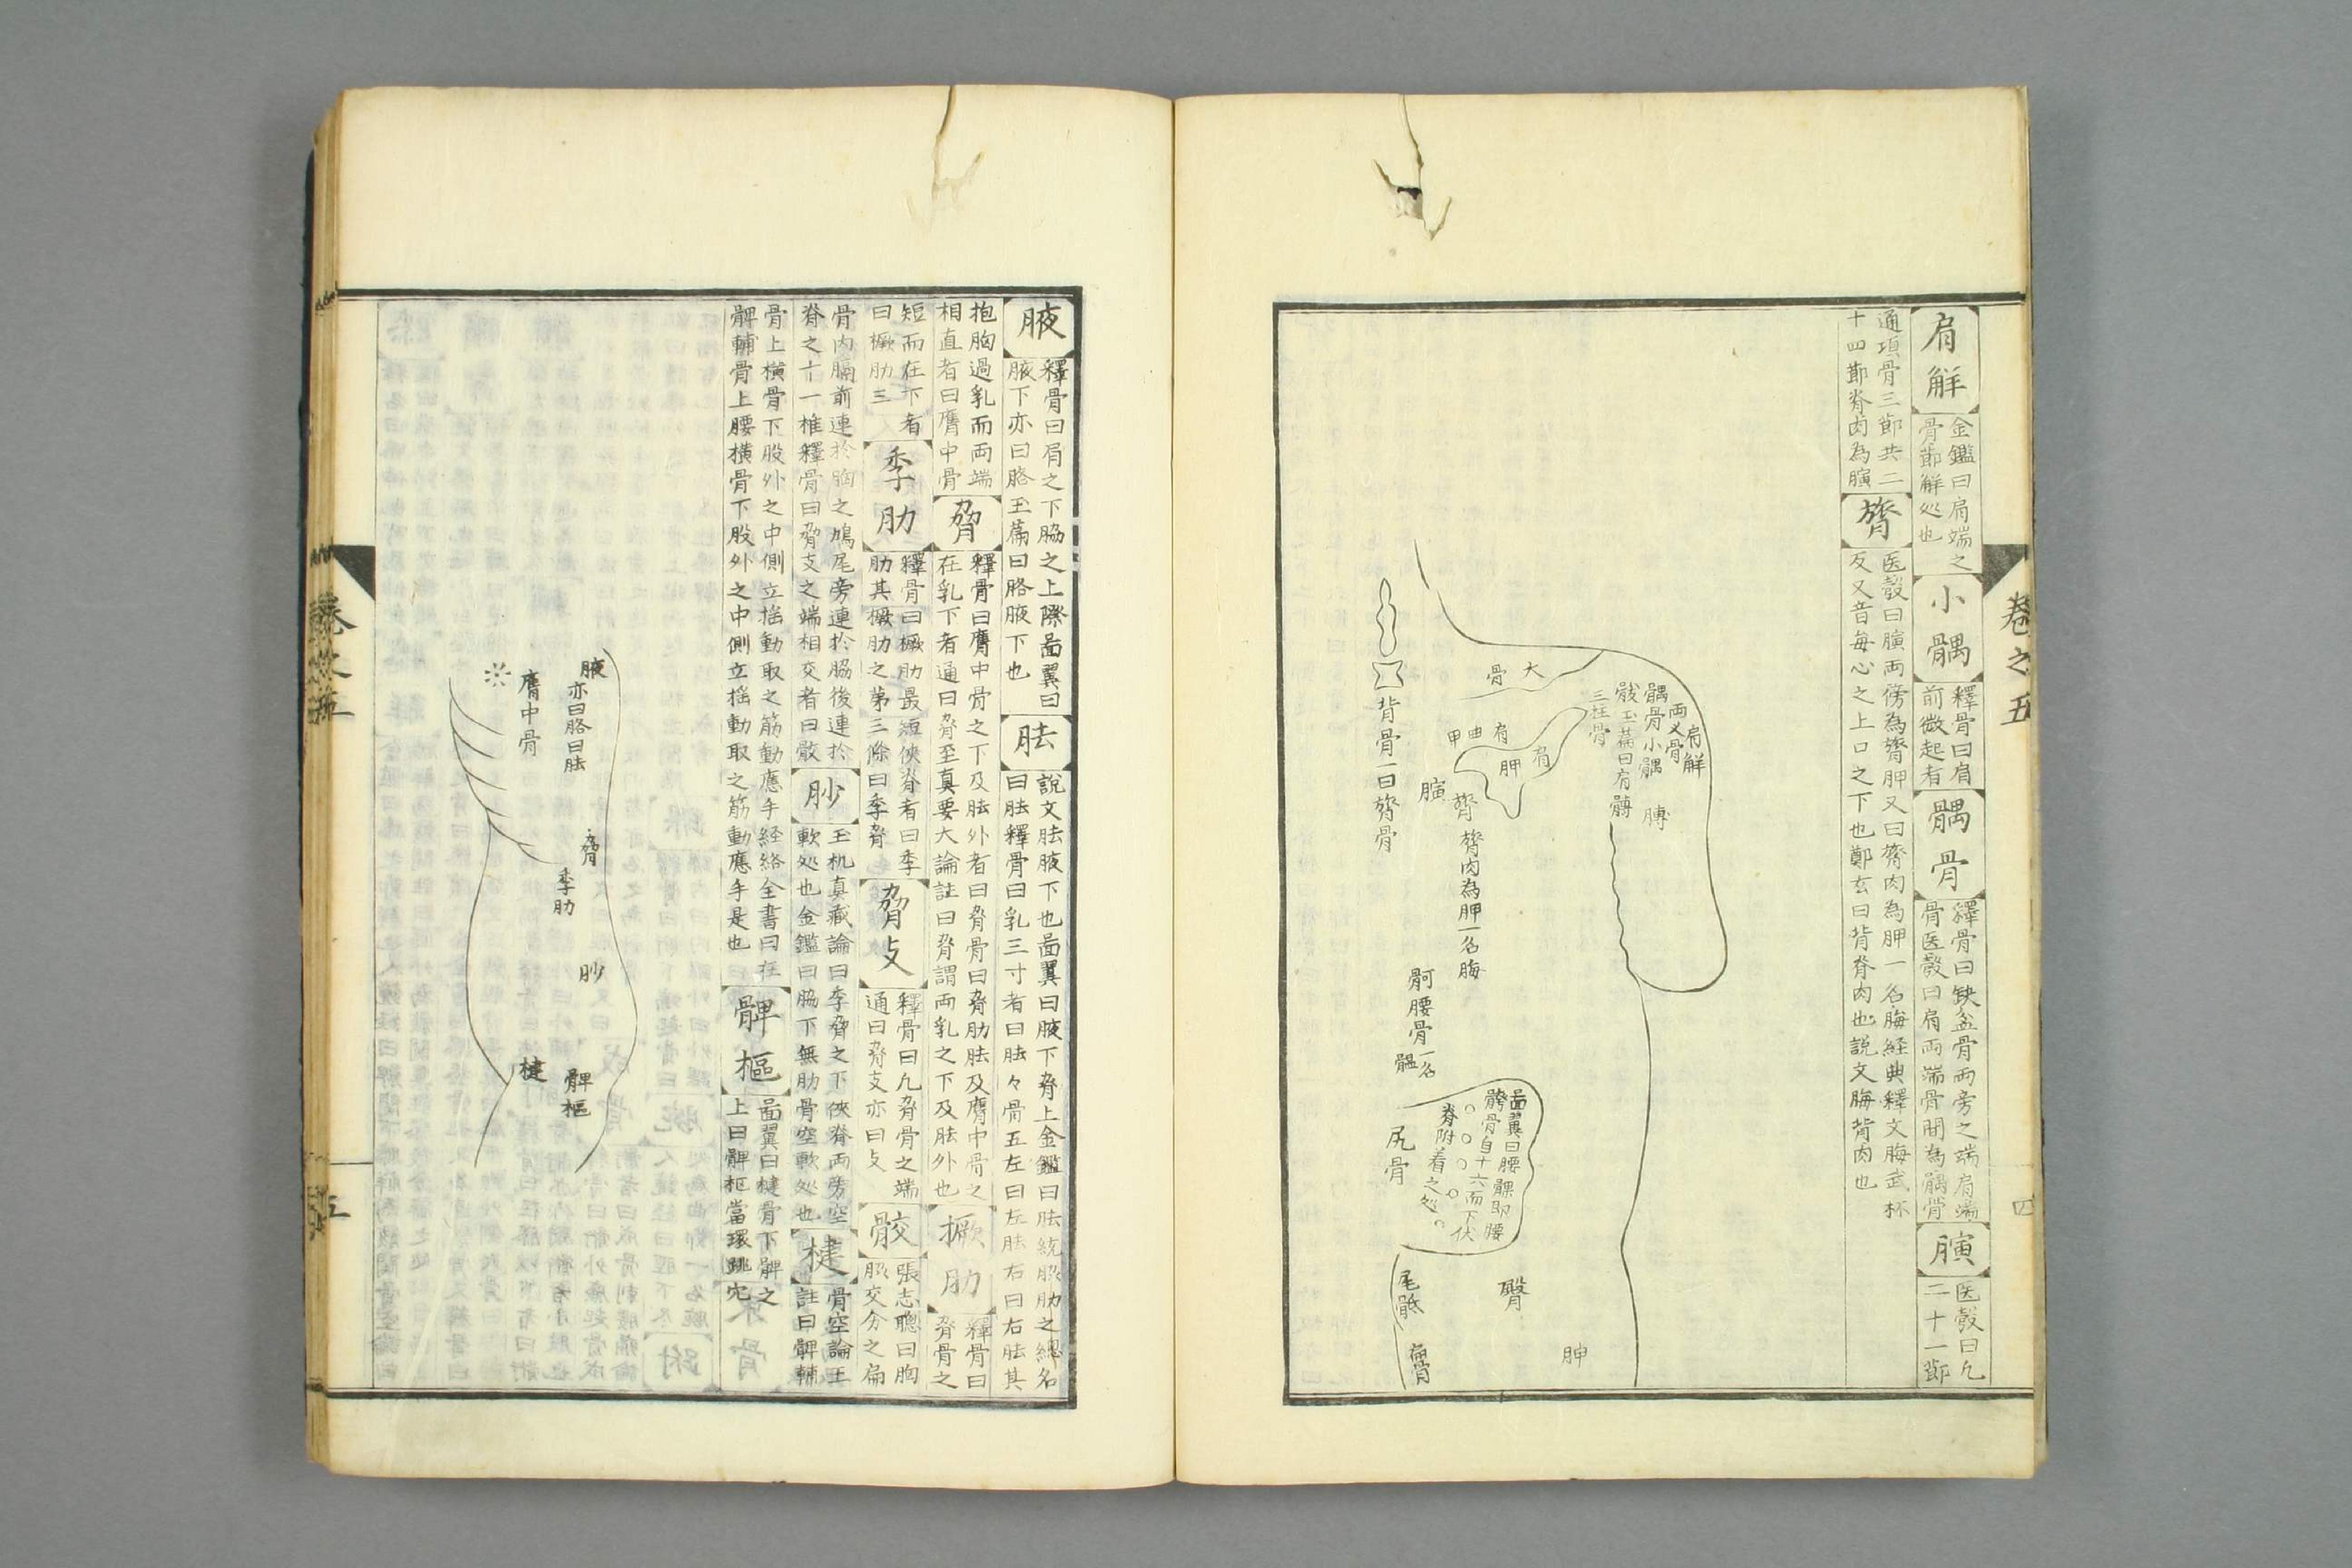 卷之五
四
肩解
金鑑曰肩端之
骨節解处也
小髃
釋骨曰肩
前微起者
髃骨
釋骨曰缺盆骨兩旁之端肩端
骨医彀曰肩兩端骨間為髃骨
䐿
医彀曰凢
二十一節
通項骨三節共二
十四節脊肉為䐿
膂
医彀曰䐿兩傍為膂胛又曰膂肉為胛一名脢経典釋文脢武杯
反又音每心之上口之下也鄭玄曰背脊肉也説文脢背肉也
肩解
兩乂骨
髃骨小髃
膊
大骨
三柱骨
肩胛
肩曲甲
䐿
膂
膂肉為胛一名脢
背骨一曰膂骨
腰骨一名
啚翼曰腰髁即腰
髈骨自十六而下伏
脊附着之処
尻骨
臀
尾骶
胂
腋
釋骨曰肩之下脇之上際啚翼曰
腋下亦曰胳玉萹曰胳腋下也
胠
說文胠腋下也啚翼曰腋下脅上金鑑曰胠統脇肋之總名
曰胠釋骨曰乳三寸者曰胠々骨五左曰左胠右曰右胠其
抱胸過乳而兩端
相直者曰膺中骨
脅
釋骨曰膺中骨之下及胠外者曰脅骨曰脅肋胠及膺中骨之
在乳下者通曰脅至真要大論註曰脅謂兩乳之下及胠外也
橛肋
釋骨曰
脅骨之
短而在下者
曰橛肋三
季肋
釋骨曰橛肋最短俠脊者曰季
肋其橛肋之第三條曰季脅
脅支
釋骨曰凢脅骨之端
通曰脅支亦曰支
骹
張志聰曰胸
脇交分之扁
骨內膈前連於胸之鳩尾旁連於脇後連於
脊之十一椎釋骨曰脅支之端相交者曰骹
䏚
玉机真藏論曰季脅之下俠脊兩旁空
軟处也金鑑曰脇下無肋骨空軟处也
楗
骨空論王
註曰髀輔
骨上橫骨下股外之中側立揺動取之筋動應手経絡全書曰在
髀輔骨上腰橫骨下股外之中側立揺動取之筋動應手是也
髀樞
啚翼曰楗骨下髀之
上曰髀枢當環跳穴
腋
亦曰胳曰胠
膺中骨
脅
季肋
䏚
楗
髀枢
五